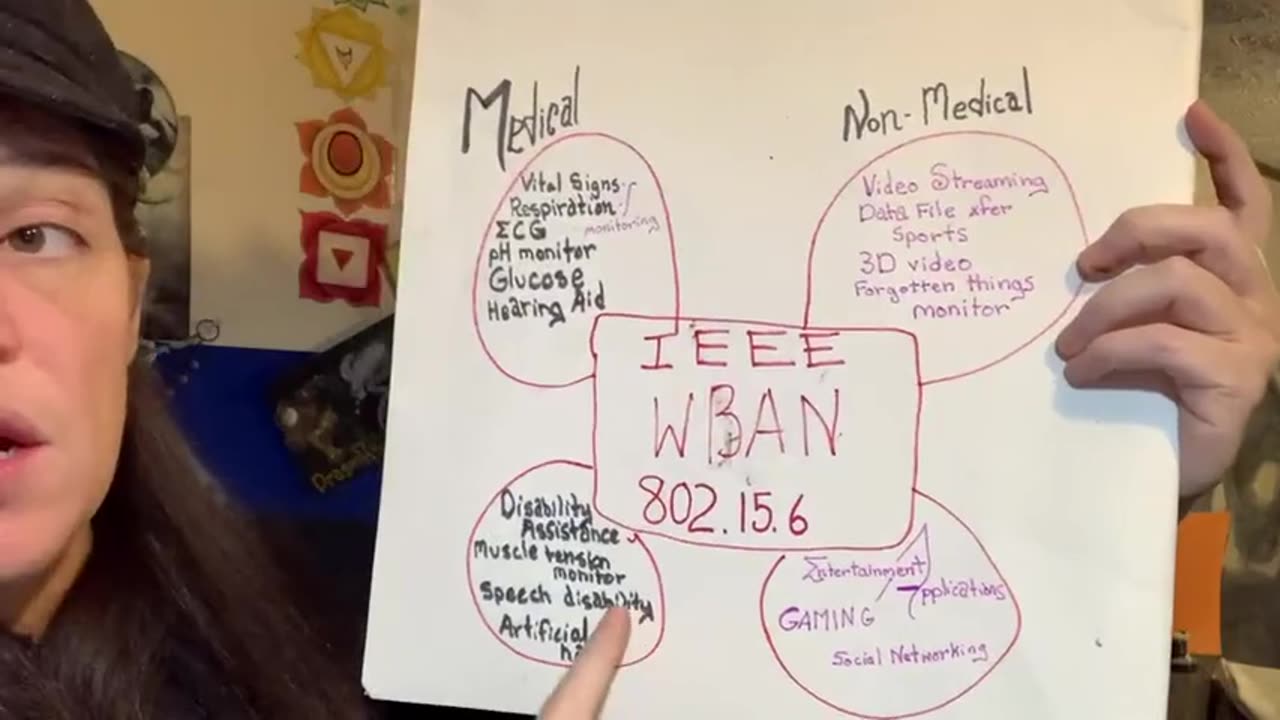 Medical
Vital Signs
Respiration
monitoring
ECG
pH monitor
Glucose
Hearing Aid
Non-Medical
Video Streaming
Data File xfer
Sports
3D video
Forgotten things
monitor
IEEE
WBAN
802.15.6
Disability
Assistance
Muscle tension
monitor
Speech disability
Artificial
Entertainment
Applications
GAMING
Social Networking